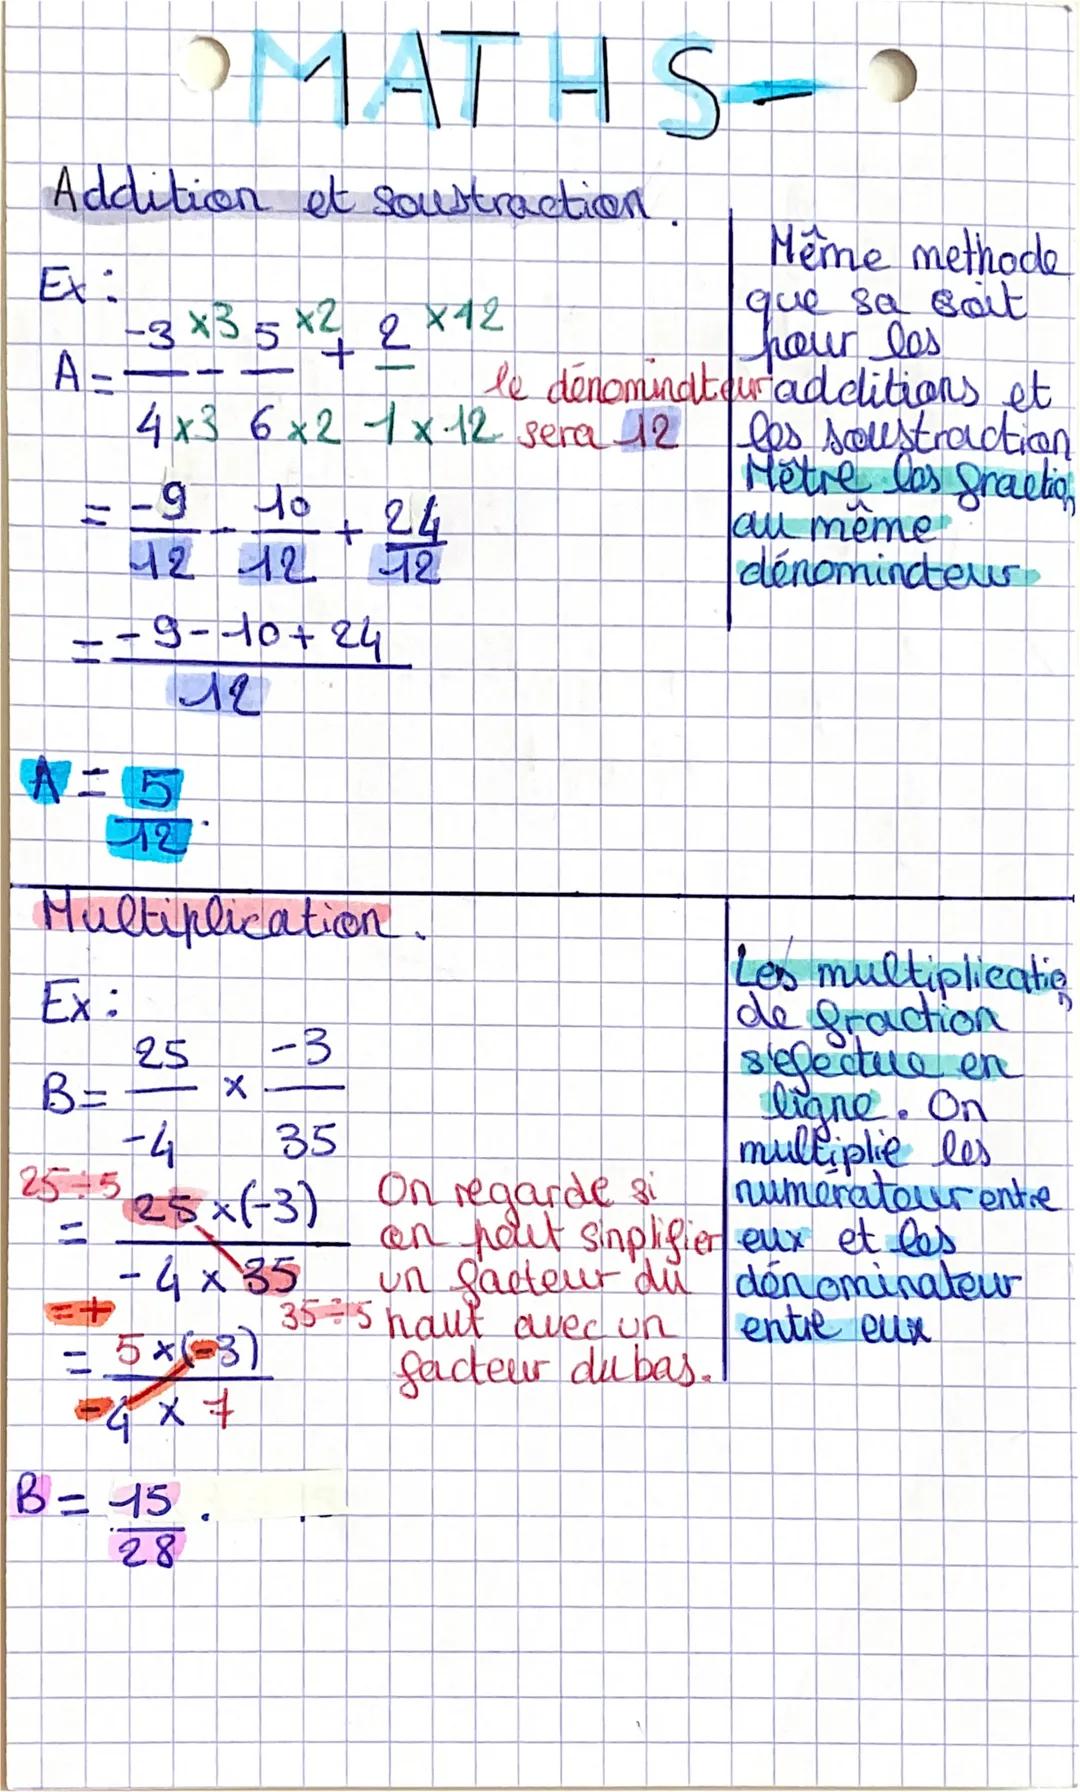 MATHS-
Addition et soustraction.
Ex :
A = -3 ×3 / 4 ×3 - 5 ×2 / 6 ×2 + 2 ×12 / 1 × 12
le dénominateur
sera 12
= -9/12 - 10/12 + 24/12
= -9 - 10 + 24 / 12
A = 5/12.
Même methode
que sa soit
pour les
additions et
les soustraction
Mêtre les fraction
au même
dénomincteur
Multiplication.
Ex :
B = 25/-4 × -3/35
25÷5
= 25 × (-3) / -4 × 35
35÷5
= +
= 5 × (-3) / -4 × 7
B = 15/28.
On regarde si
on peut sinplifier
un facteur du
haut avec un
facteur du bas.
Les multiplication
de fraction
s'efectue en
ligne. On
multiplie les
numérateur entre
eux et les
dénominateur
entre eux